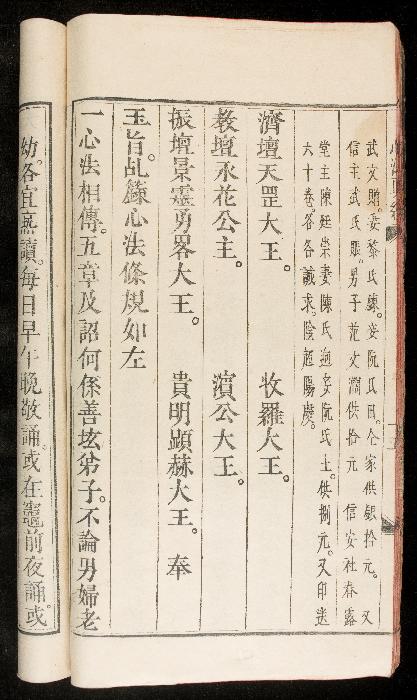 武文賍。妻黎氏練。妾阮氏田。仝家供銀拾元。又
信主武氏賬。男子范文潤供拾元　信安社春露
堂主陳廷崇妻陳氏迎妾阮氏土。供捌元。又印送
六十卷。各各誠求。陰超陽慶。
濟壇天罡大王。　牧羅大王。
教壇承花公主。　濱公大王。
振壇景靈勇畧大王。　貴明顯赫大王。　奉
玉旨。乩籙心法條規如左
一心法相傳。五章及詔何係善坛弟子。不論男婦老
幼。各宜熹讀。每日早午晚敬誦。或在竈前夜誦。或